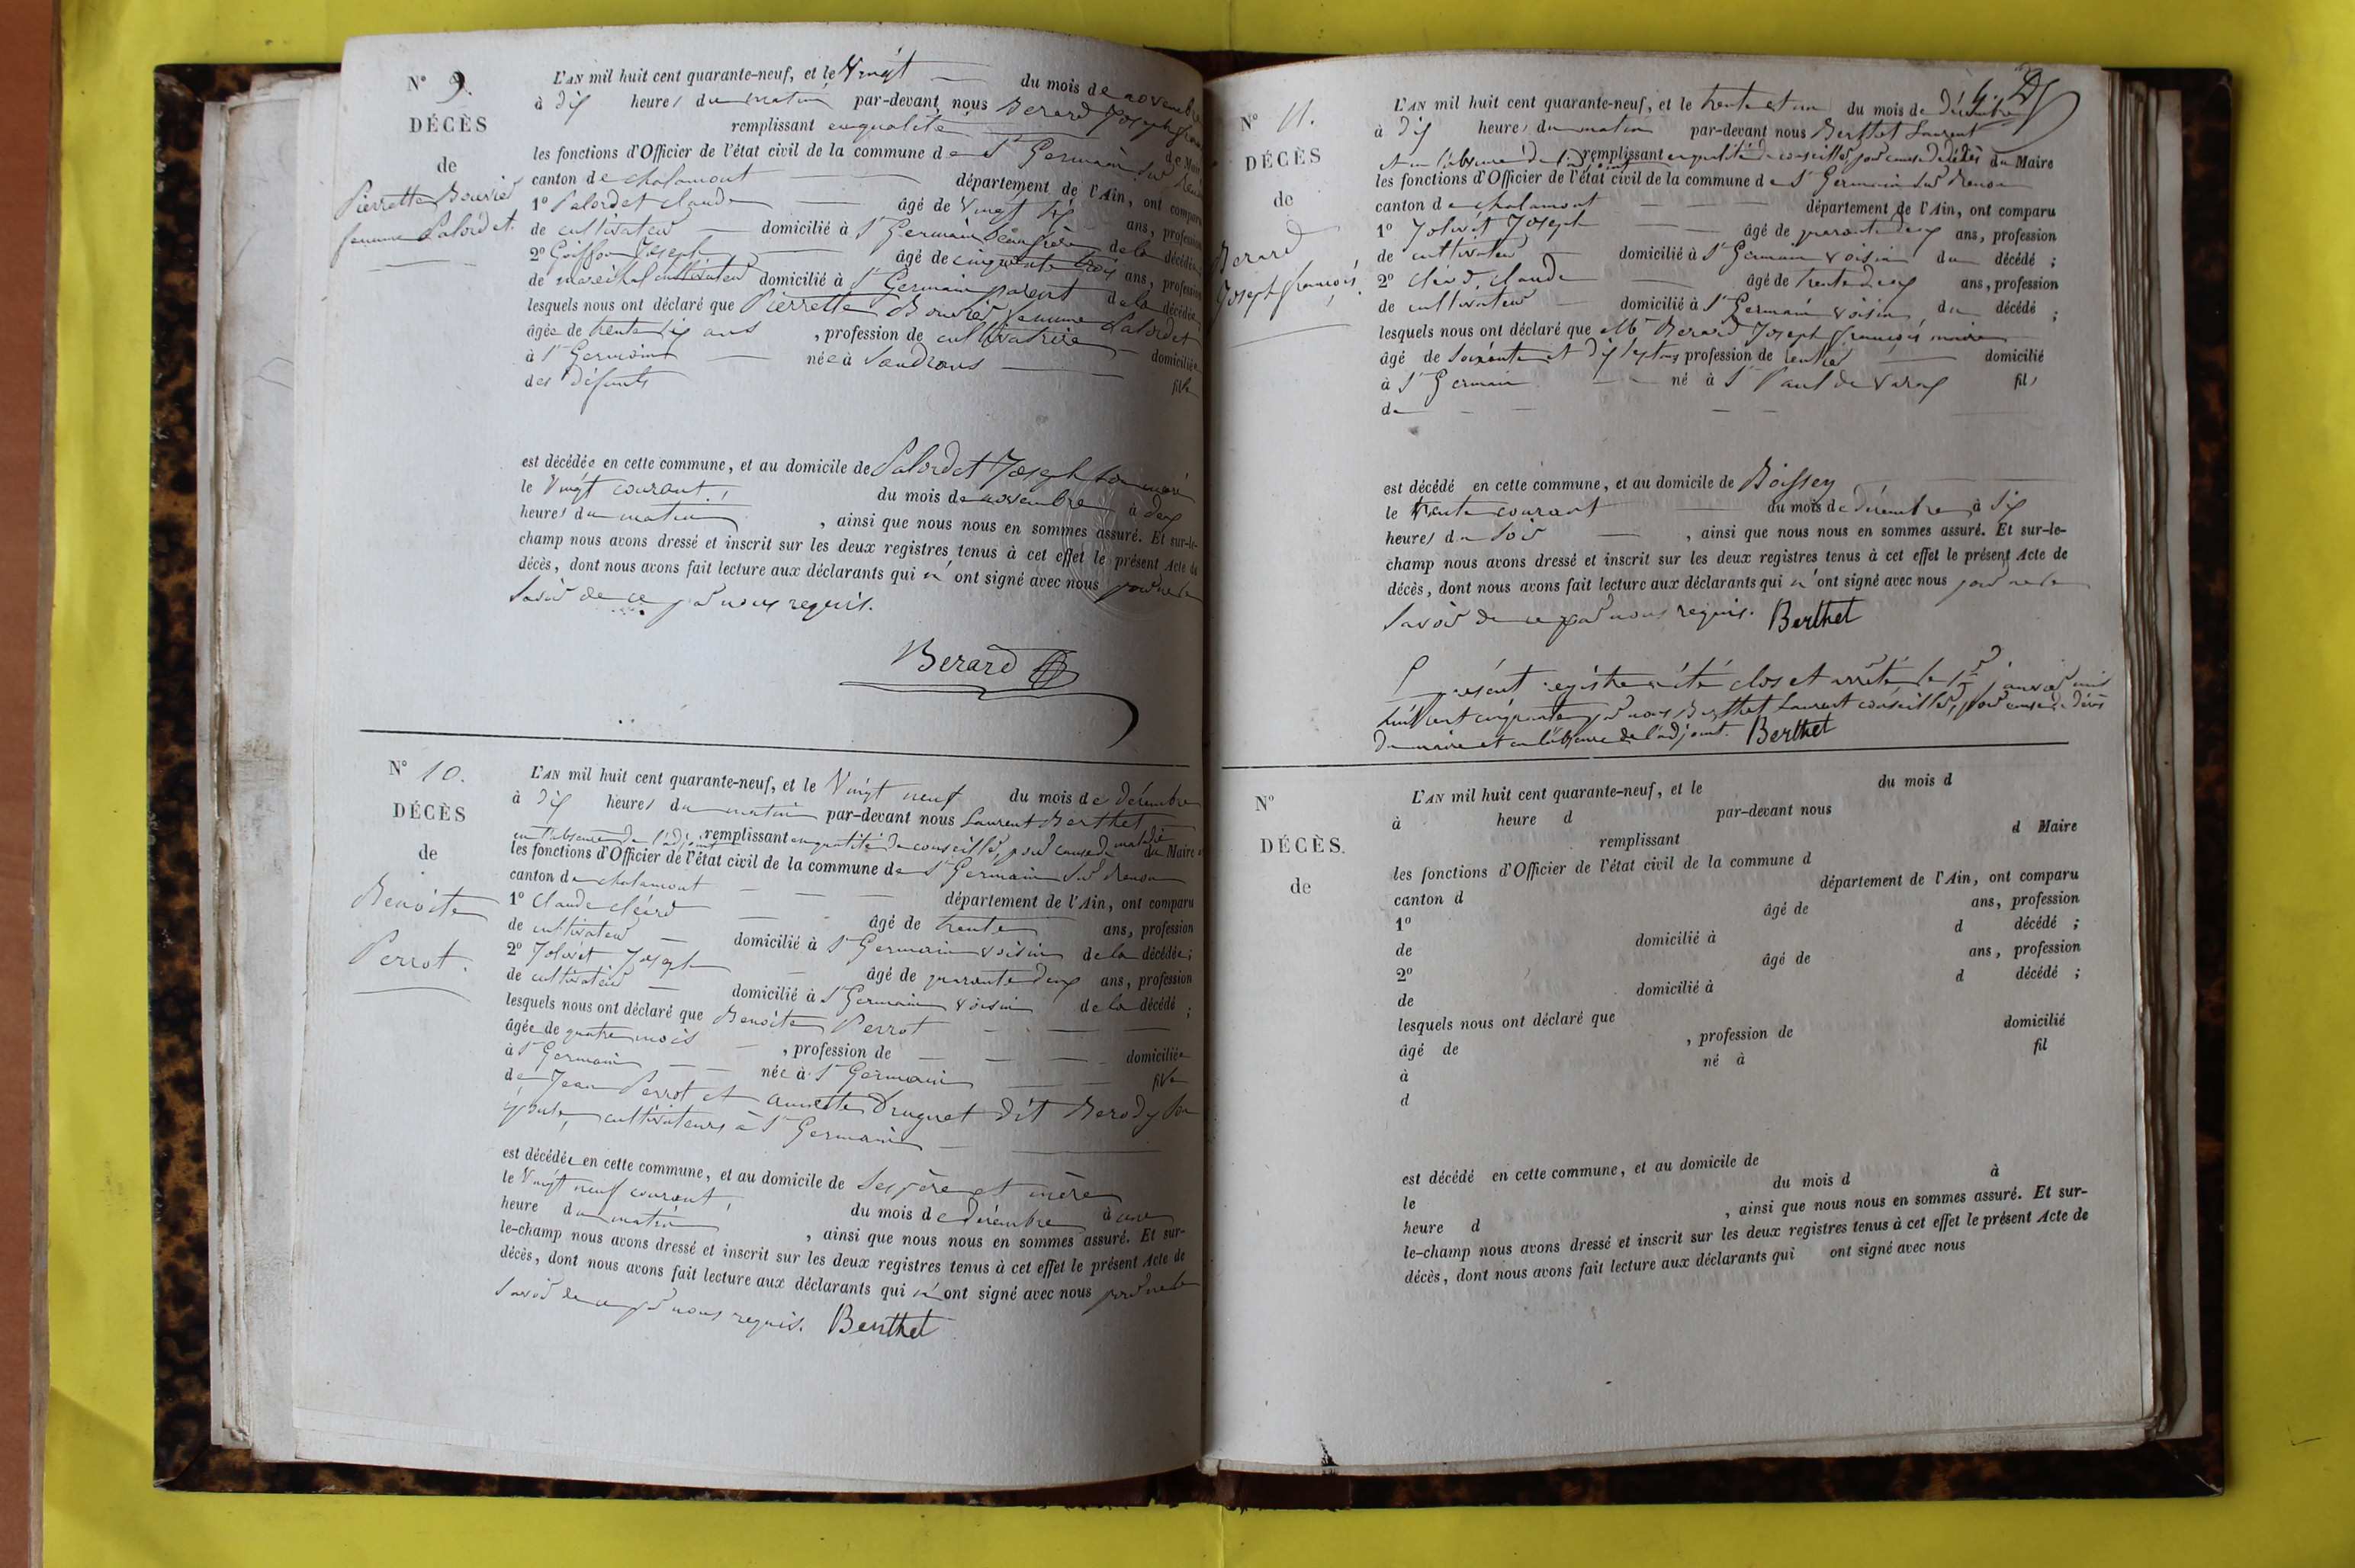 N° 9.
DÉCÈS
de
Pierrette Bouvier
femme Palordet.
L'AN mil huit cent quarante-neuf, et le Vingt du mois de novembre
à dix heures du matin par-devant nous Berard Joseph
remplissant en qualité de Maire
les fonctions d'Officier de l'état civil de la commune de St Germain sur Renon
canton de chalamont département de l'Ain, ont comparu
1° Palordet claude âgé de Vingt six ans, profession
de cultivateur domicilié à St Germain beau frère de la décédée;
2° Goiffon Joseph âgé de cinquante trois ans, profession
de marechal cultivateur domicilié à St Germain parent de la décédée;
lesquels nous ont déclaré que Pierrette Bouvier femme Palordet
âgée de trente six ans, profession de cultivatrice domiciliée
à St Germain née à Sandrans fille
des défunts
est décédée en cette commune, et au domicile de Palordet Joseph son mari
le Vingt courant, du mois de novembre à deux
heures du matin, ainsi que nous nous en sommes assuré. Et sur-le-
champ nous avons dressé et inscrit sur les deux registres tenus à cet effet le présent Acte de
décès, dont nous avons fait lecture aux déclarants qui n'ont signé avec nous pour ne le
savoir de ce par nous requis.
Berard
N° 10.
DÉCÈS
de
Benoite
Perrot.
L'AN mil huit cent quarante-neuf, et le Vingt neuf du mois de décembre
à dix heures du matin par-devant nous Laurent Berthet
en l'absence de l'adjoint remplissant en qualité de conseiller, pour cause de maladie du Maire
les fonctions d'Officier de l'état civil de la commune de St Germain sur Renon
canton de chalamont département de l'Ain, ont comparu
1° Claude cléard âgé de trente ans, profession
de cultivateur domicilié à St Germain voisin de la décédée;
2° Jolivet Joseph âgé de quarante deux ans, profession
de cultivateur domicilié à St Germain voisin de la décédé;
lesquels nous ont déclaré que Benoite Perrot
âgée de quatre mois, profession de domiciliée
à St Germain née à St Germain fille
de Jean Perrot et annette Druguet dit Berody son
épouse, cultivateurs à St Germain
est décédée en cette commune, et au domicile de Ses père et mère
le Vingt neuf courant, du mois de décembre à une
heure du matin, ainsi que nous nous en sommes assuré. Et sur-
le-champ nous avons dressé et inscrit sur les deux registres tenus à cet effet le présent Acte de
décès, dont nous avons fait lecture aux déclarants qui n'ont signé avec nous pour ne le
savoir de ce par nous requis. Berthet
N° 11.
DÉCÈS
de
Berard
Joseph françois.
L'AN mil huit cent quarante-neuf, et le trente et un du mois de décembre
à dix heures du matin par-devant nous Berthet Laurent
et en l'absence de l'adjoint remplissant en qualité de conseiller pour cause de décès du Maire
les fonctions d'Officier de l'état civil de la commune de St Germain sur Renon
canton de chalamont département de l'Ain, ont comparu
1° Jolivet Joseph âgé de quarante deux ans, profession
de cultivateur domicilié à St Germain voisin du décédé;
2° cléard, claude âgé de trente deux ans, profession
de cultivateur domicilié à St Germain voisin, du décédé;
lesquels nous ont déclaré que Mr Berard Joseph françois maire
âgé de soixante et dix sept ans profession de rentier domicilié
à St Germain né à St Paul de Varax fils
de
est décédé en cette commune, et au domicile de Boissey
le trente courant du mois de décembre à six
heures du soir, ainsi que nous nous en sommes assuré. Et sur-le-
champ nous avons dressé et inscrit sur les deux registres tenus à cet effet le présent Acte de
décès, dont nous avons fait lecture aux déclarants qui n'ont signé avec nous pour ne le
savoir de ce par nous requis. Berthet
Le présent registre a été clos et arrêté le 1er janvier mil
huit cent cinquante par nous Berthet Laurent conseiller, pour cause de décès
du maire et en l'absence de l'adjoint. Berthet
N°
DÉCÈS.
de
L'AN mil huit cent quarante-neuf, et le du mois d
à heure d par-devant nous
remplissant d Maire
les fonctions d'Officier de l'état civil de la commune d
canton d département de l'Ain, ont comparu
1° âgé de ans, profession
de domicilié à d décédé;
2° âgé de ans, profession
de domicilié à d décédé;
lesquels nous ont déclaré que
âgé de, profession de domicilié
à né à fil
d
est décédé en cette commune, et au domicile de
le du mois d à
heure d, ainsi que nous nous en sommes assuré. Et sur-
le-champ nous avons dressé et inscrit sur les deux registres tenus à cet effet le présent Acte de
décès, dont nous avons fait lecture aux déclarants qui ont signé avec nous